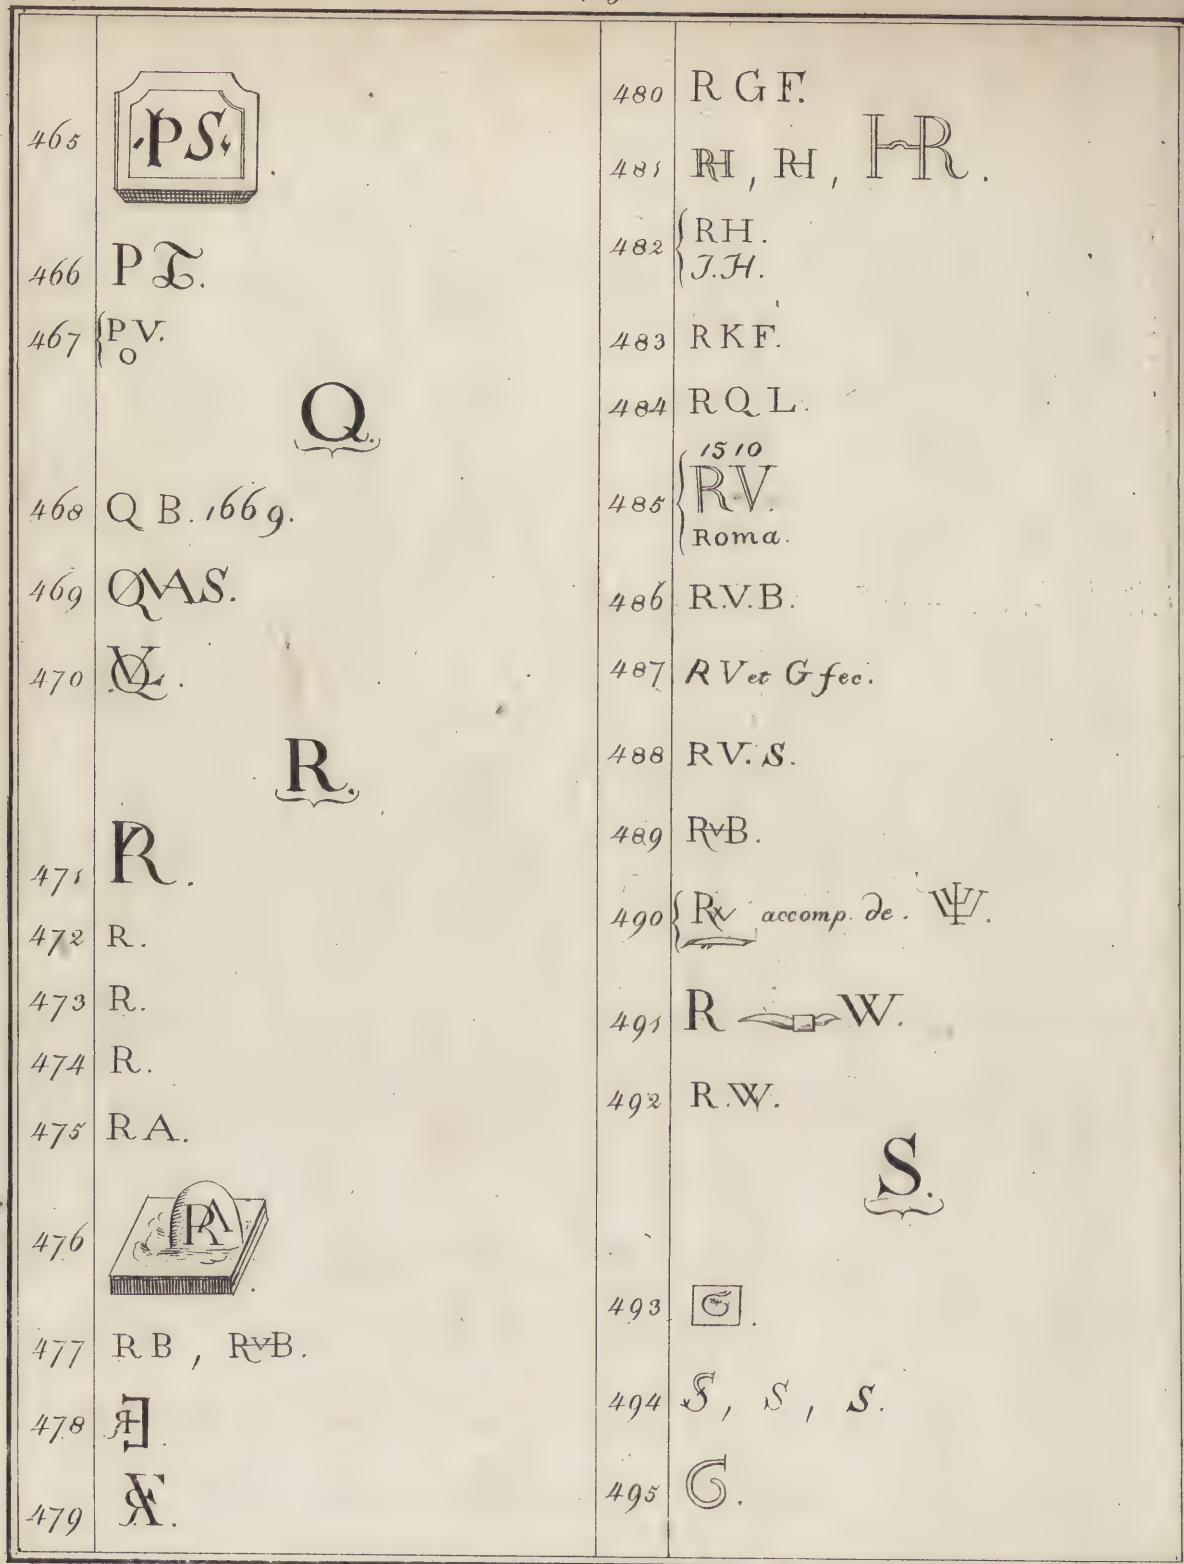 465 ·PS·.
466 P T.
467 P V.
O
Q.
468 Q B. 1669.
469 QMAS.
470 QVL.
R.
471 R.
472 R.
473 R.
474 R.
475 R A.
476 RA.
477 R B, RVB.
478
479
480 R G F.
481 RH, RH, HR.
482 RH.
J.H.
483 R K F.
484 R Q L.
1510
485 R.V.
Roma.
486 R.V.B.
487 R V et G fec.
488 R V. S.
489 RVB.
490 RV accomp. de.
491 R W.
492 R.W.
S.
493 G.
494 S, S, S.
495 G.